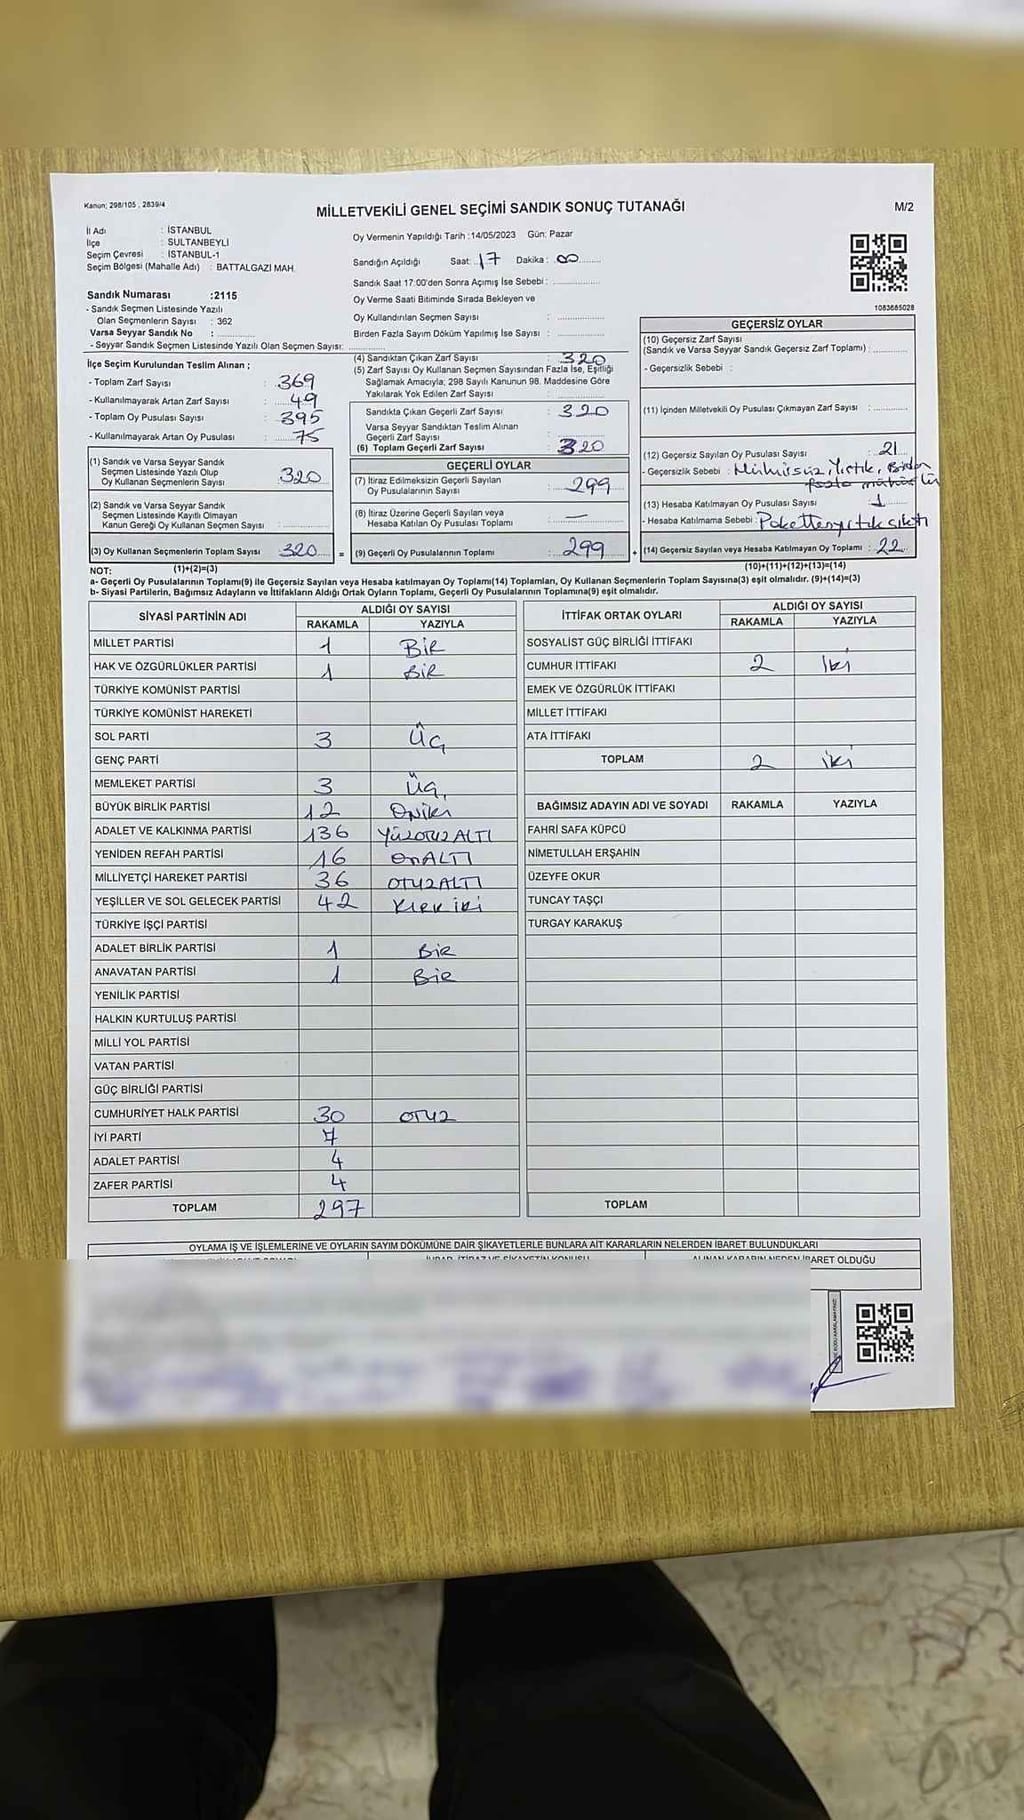 Kanun; 298/105 , 2839/4
MİLLETVEKİLİ GENEL SEÇİMİ SANDIK SONUÇ TUTANAĞI
M/2
İl Adı : İSTANBUL
İlçe : SULTANBEYLİ
Seçim Çevresi : İSTANBUL-1
Seçim Bölgesi (Mahalle Adı) : BATTALGAZİ MAH.
Sandık Numarası :2115
- Sandık Seçmen Listesinde Yazılı
Olan Seçmenlerin Sayısı : 362
Varsa Seyyar Sandık No :
- Seyyar Sandık Seçmen Listesinde Yazılı Olan Seçmen Sayısı:
Oy Vermenin Yapıldığı Tarih :14/05/2023 Gün: Pazar
Sandığın Açıldığı Saat: 17 Dakika : 00
Sandık Saat 17:00'den Sonra Açımış İse Sebebi :
Oy Verme Saati Bitiminde Sırada Bekleyen ve
Oy Kullandırılan Seçmen Sayısı :
Birden Fazla Sayım Döküm Yapılmış İse Sayısı :
1083685028
İlçe Seçim Kurulundan Teslim Alınan ;
- Toplam Zarf Sayısı : 369
- Kullanılmayarak Artan Zarf Sayısı : 49
- Toplam Oy Pusulası Sayısı : 395
- Kullanılmayarak Artan Oy Pusulası : 75
(1) Sandık ve Varsa Seyyar Sandık
Seçmen Listesinde Yazılı Olup
Oy Kullanan Seçmenlerin Sayısı : 320
(2) Sandık ve Varsa Seyyar Sandık
Seçmen Listesinde Kayıtlı Olmayan
Kanun Gereği Oy Kullanan Seçmen Sayısı :
(3) Oy Kullanan Seçmenlerin Toplam Sayısı : 320 =
(1)+(2)=(3)
(4) Sandıktan Çıkan Zarf Sayısı : 320
(5) Zarf Sayısı Oy Kullanan Seçmen Sayısından Fazla İse, Eşitliği
Sağlamak Amacıyla; 298 Sayılı Kanunun 98. Maddesine Göre
Yakılarak Yok Edilen Zarf Sayısı :
Sandıkta Çıkan Geçerli Zarf Sayısı : 320
Varsa Seyyar Sandıktan Teslim Alınan
Geçerli Zarf Sayısı :
(6) Toplam Geçerli Zarf Sayısı : 320
GEÇERLİ OYLAR
(7) İtiraz Edilmeksizin Geçerli Sayılan
Oy Pusulalarının Sayısı : 299
(8) İtiraz Üzerine Geçerli Sayılan veya
Hesaba Katılan Oy Pusulası Toplamı : —
(9) Geçerli Oy Pusulalarının Toplamı : 299 +
GEÇERSİZ OYLAR
(10) Geçersiz Zarf Sayısı
(Sandık ve Varsa Seyyar Sandık Geçersiz Zarf Toplamı) :
- Geçersizlik Sebebi :
(11) İçinden Milletvekili Oy Pusulası Çıkmayan Zarf Sayısı :
(12) Geçersiz Sayılan Oy Pusulası Sayısı : 21
- Geçersizlik Sebebi : Mühürsüz, Yırtık, Birden
fazla mühürlü
(13) Hesaba Katılmayan Oy Pusulası Sayısı : 1
- Hesaba Katılmama Sebebi : Paketten yırtık çıktı
(14) Geçersiz Sayılan veya Hesaba Katılmayan Oy Toplamı : 22
(10)+(11)+(12)+(13)=(14)
NOT:
a- Geçerli Oy Pusulalarının Toplamı(9) ile Geçersiz Sayılan veya Hesaba katılmayan Oy Toplamı(14) Toplamları, Oy Kullanan Seçmenlerin Toplam Sayısına(3) eşit olmalıdır. (9)+(14)=(3)
b- Siyasi Partilerin, Bağımsız Adayların ve İttifakların Aldığı Ortak Oyların Toplamı, Geçerli Oy Pusulalarının Toplamına(9) eşit olmalıdır.
SİYASİ PARTİNİN ADI ALDIĞI OY SAYISI
RAKAMLA YAZIYLA
MİLLET PARTİSİ 1 BİR
HAK VE ÖZGÜRLÜKLER PARTİSİ 1 BİR
TÜRKİYE KOMÜNİST PARTİSİ
TÜRKİYE KOMÜNİST HAREKETİ
SOL PARTİ 3 ÜÇ
GENÇ PARTİ
MEMLEKET PARTİSİ 3 ÜÇ
BÜYÜK BİRLİK PARTİSİ 12 ONİKİ
ADALET VE KALKINMA PARTİSİ 136 YÜZOTUZALTI
YENİDEN REFAH PARTİSİ 16 ONALTI
MİLLİYETÇİ HAREKET PARTİSİ 36 OTUZALTI
YEŞİLLER VE SOL GELECEK PARTİSİ 42 KIRKİKİ
TÜRKİYE İŞÇİ PARTİSİ
ADALET BİRLİK PARTİSİ 1 BİR
ANAVATAN PARTİSİ 1 BİR
YENİLİK PARTİSİ
HALKIN KURTULUŞ PARTİSİ
MİLLİ YOL PARTİSİ
VATAN PARTİSİ
GÜÇ BİRLİĞİ PARTİSİ
CUMHURİYET HALK PARTİSİ 30 OTUZ
İYİ PARTİ 7
ADALET PARTİSİ 4
ZAFER PARTİSİ 4
TOPLAM 297
İTTİFAK ORTAK OYLARI ALDIĞI OY SAYISI
RAKAMLA YAZIYLA
SOSYALİST GÜÇ BİRLİĞİ İTTİFAKI
CUMHUR İTTİFAKI 2 İki
EMEK VE ÖZGÜRLÜK İTTİFAKI
MİLLET İTTİFAKI
ATA İTTİFAKI
TOPLAM 2 iki
BAĞIMSIZ ADAYIN ADI VE SOYADI RAKAMLA YAZIYLA
FAHRİ SAFA KÜPCÜ
NİMETULLAH ERŞAHİN
ÜZEYFE OKUR
TUNCAY TAŞÇI
TURGAY KARAKUŞ
TOPLAM
OYLAMA İŞ VE İŞLEMLERİNE VE OYLARIN SAYIM DÖKÜMÜNE DAİR ŞİKAYETLERLE BUNLARA AİT KARARLARIN NELERDEN İBARET BULUNDUKLARI
ALINAN KARARIN NEDEN İBARET OLDUĞU